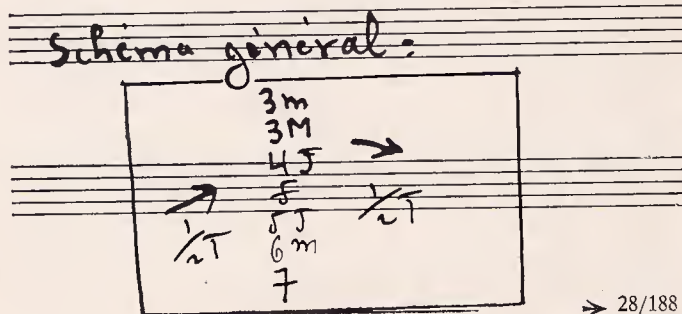 Schéma général :
3m
3M
4J
5J
1/2T
1/2T
6m
7
→ 28/188